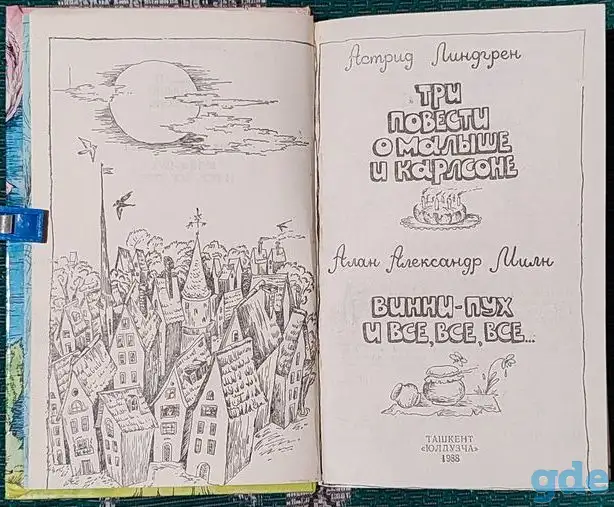 Астрид Линдгрен
ТРИ
ПОВЕСТИ
О МАЛЫШЕ
И КАРЛСОНЕ
Алан Александр Милн
ВИННИ-ПУХ
И ВСЕ, ВСЕ, ВСЕ...
ТАШКЕНТ
«ЮЛДУЗЧА»
1988
gde